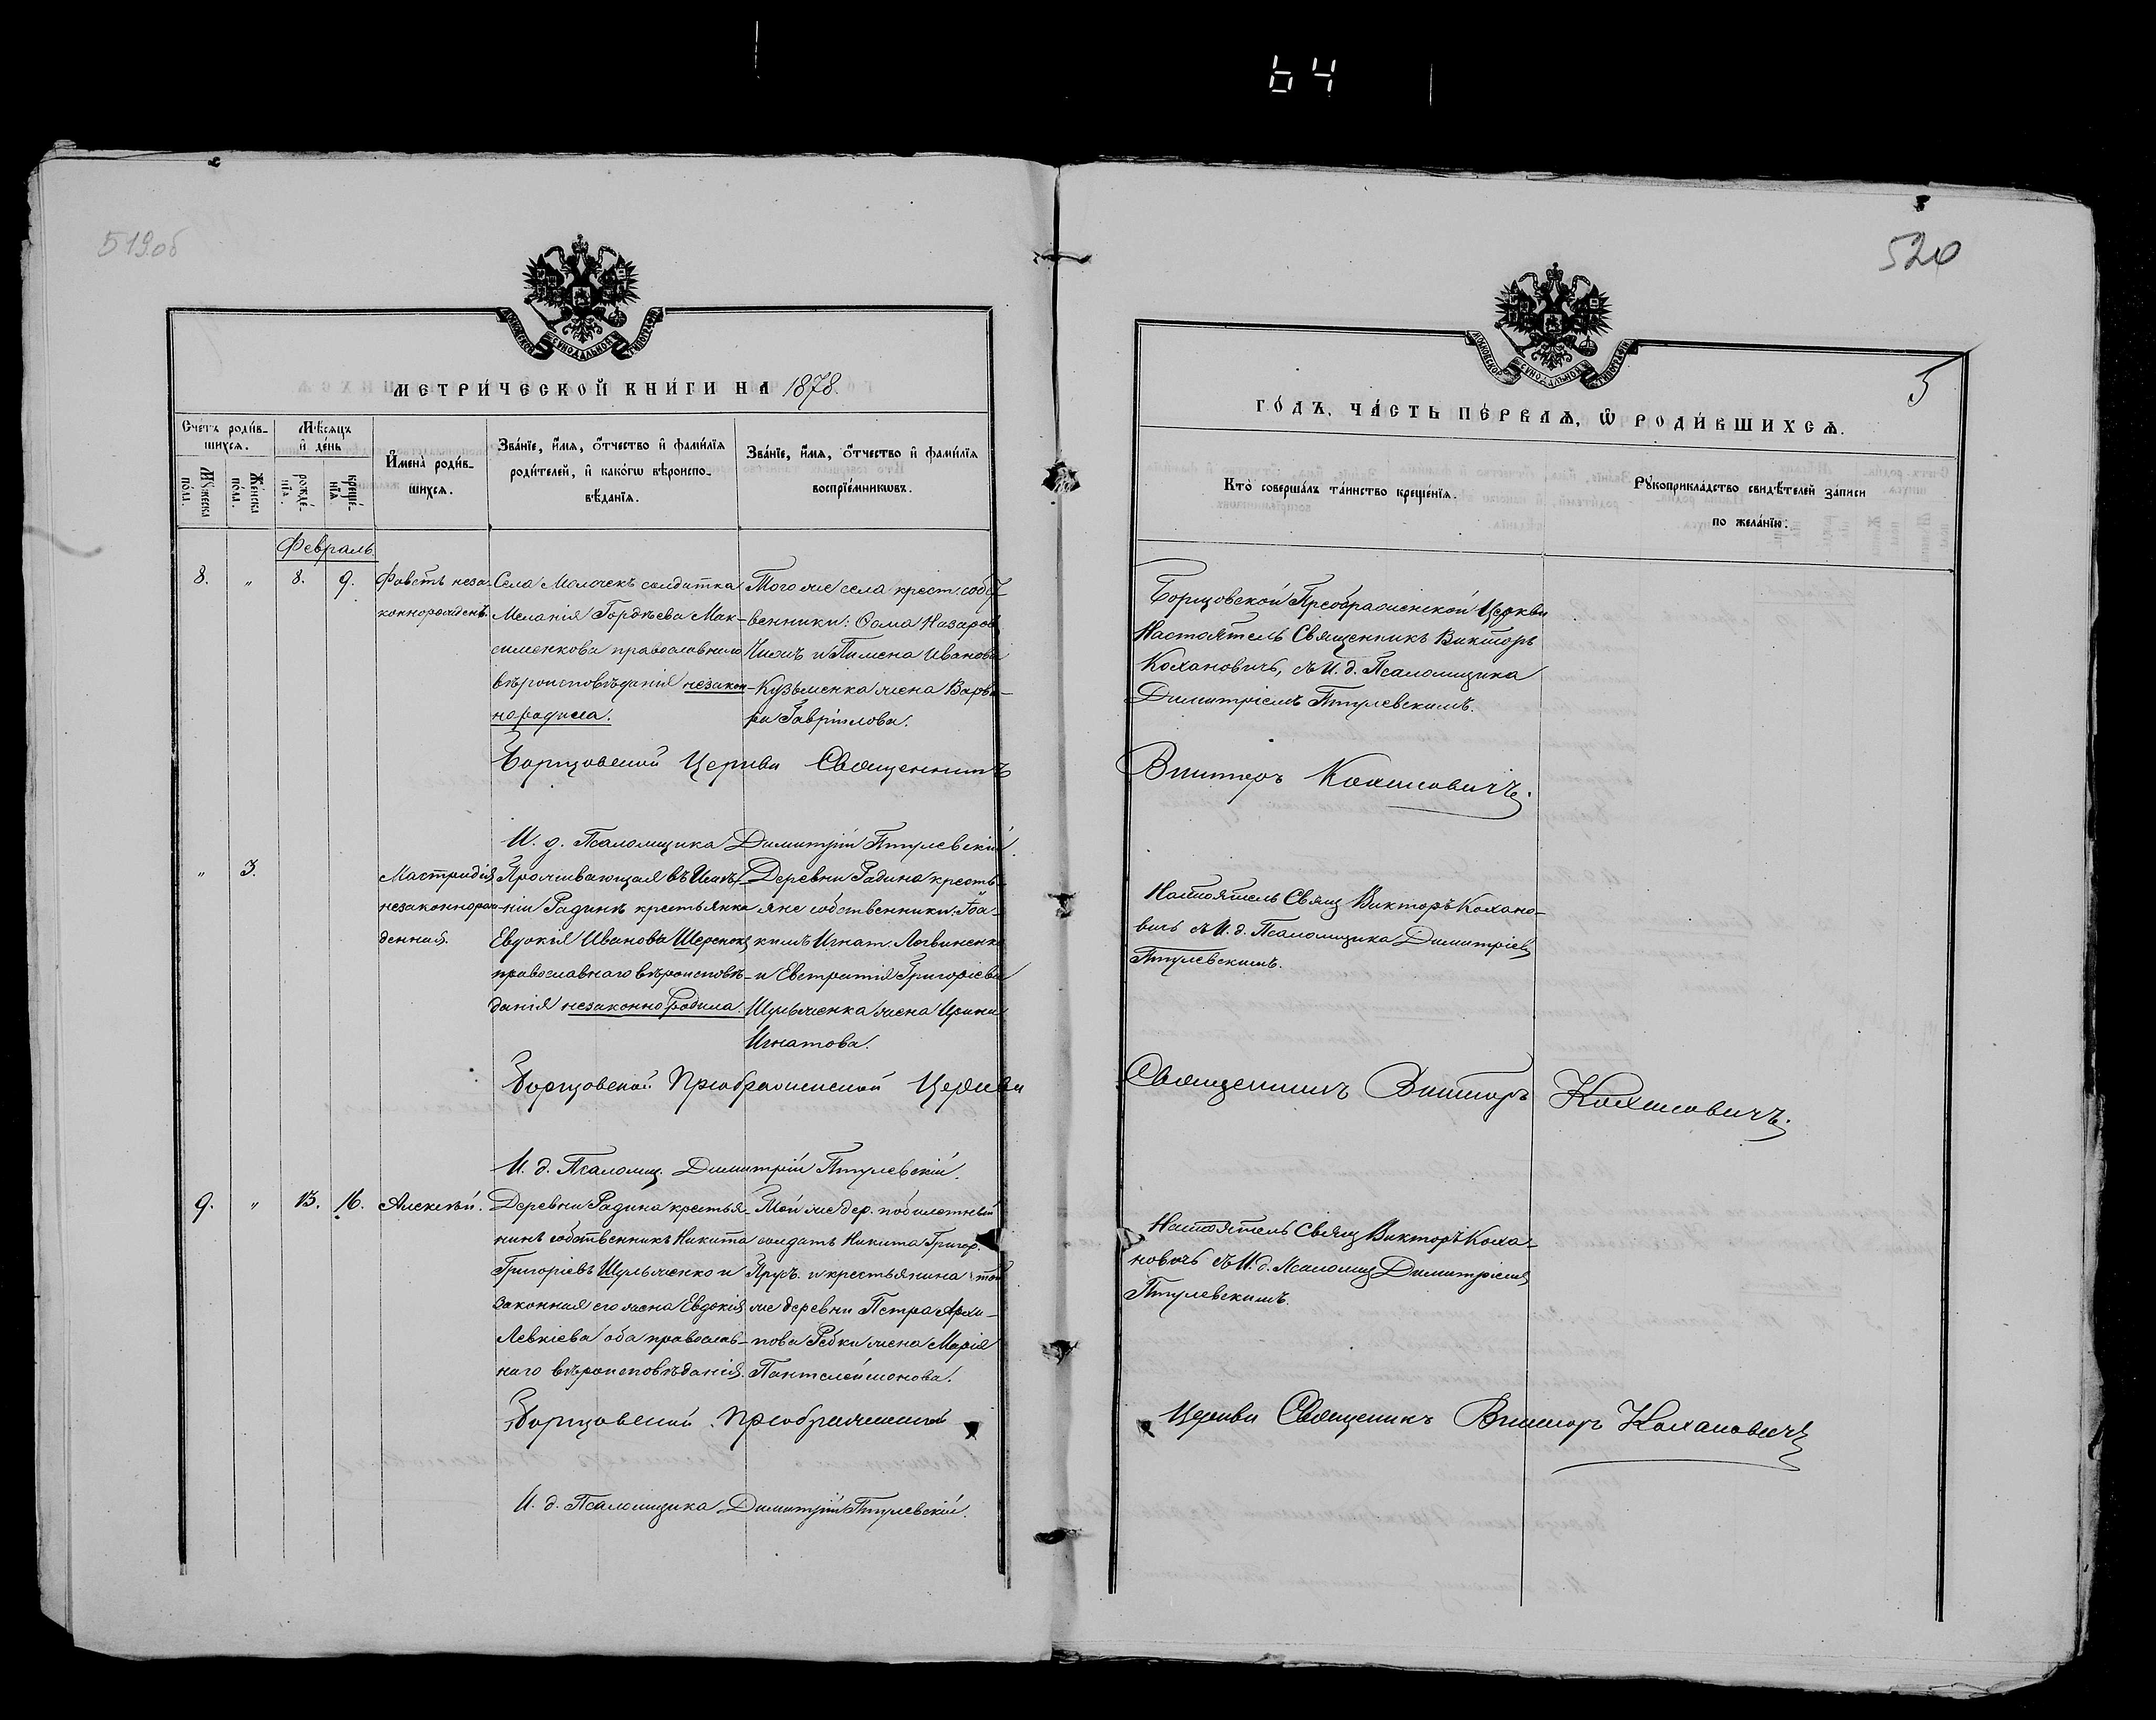 64
519об
МОСКОВСКОЙ СѴНОДАЛЬНОЙ ТИПОГРАФІИ
МЕТРИ́ЧЕСКОЙ КНИ́ГИ НА 1878.
Счетъ роди́в-
шихся.
Мѣ́сяцъ
и҆ де́нь
Мꙋ́жеска
по́ла.
Же́нска
по́ла.
рожде́-
нїа.
креще́-
нїа.
И҆мена̀ роди́в-
шихся.
Зва́нїе, и҆́мя, ѻ҆́тчество и҆ фами́лїя
роди́телей, и҆ како́гѡ вѣроиспо-
вѣ́данїя.
Зва́нїе, и҆́мя, ѻ҆́тчество и҆ фами́лїя
воспрїе́мникѡвъ.
Февраль.
8. " 8. 9.
Фавстъ неза-
коннорожденъ.
Села Молочекъ солдатка
Меланія Гордѣева Мак-
сименкова православнаго
вѣроисповѣданія незакон-
но родила.
Того же села крест. собст
венники: Ѳома Назаровъ
и Пимена Иванова
Кузьменка жена Варва-
ра Гавріилова.
Борщовской Церкви Священникъ
И. д. Псаломщика Димитрій Птулевскій.
" 3.
Мастридія
незаконнорож-
денная.
Проживающая въ
Радинѣ крестьянка
Евдокія Иванова
православнаго вѣроисповѣ-
данія незаконно родила.
Деревни Радина кресть-
яне собственники: Іоа-
кимъ Игнат. Логвиненко
и Евстратія Григоріева
Шульженка жена Ирина
Игнатова.
Борщовской Преображенской Церкви
И. д. Псаломщ. Димитрій Птулевскій.
9. " 13. 16.
Алексѣй.
Деревни Радина крестья-
нинъ собственникъ Никита
Григоріевъ Шульженко и
законная его жена Евдокія
Левкіева оба православ-
наго вѣроисповѣданія.
Той же дер. побилетный
солдатъ Никита Григор.
Прусъ и крестьянина той
же деревни Петра Архи-
пова Рѣбки жена Марія
Пантелеймонова.
Борщовской Преображенской
И. д. Псаломщика Димитрій Птулевскій.
520
МОСКОВСКОЙ СѴНОДАЛЬНОЙ ТИПОГРАФІИ
5
ГО́ДЪ, ЧА́СТЬ ПЕ́РВАѦ, Ѡ҆ РОДИ́ВШИХСѦ.
Кто̀ соверша́лъ та́инство креще́нїя.
Рꙋкоприкла́дство свидѣ́телей за́писи
по жела́нїю.
Борщовской Преображенской Церкви
Настоятель Священникъ Викторъ
Кохановичъ, съ И. д. Псаломщика
Димитріемъ Птулевскимъ.
Викторъ Кохановичъ.
Настоятель Свящ Викторъ Кохано-
вичъ съ И. д. Псаломщика Димитріемъ
Птулевскимъ.
Священникъ Викторъ Кохановичъ.
Настоятель Свящ Викторъ Коха-
новичъ съ И. д. Псаломщ Димитріемъ
Птулевскимъ.
Церкви Священникъ Викторъ Кохановичъ